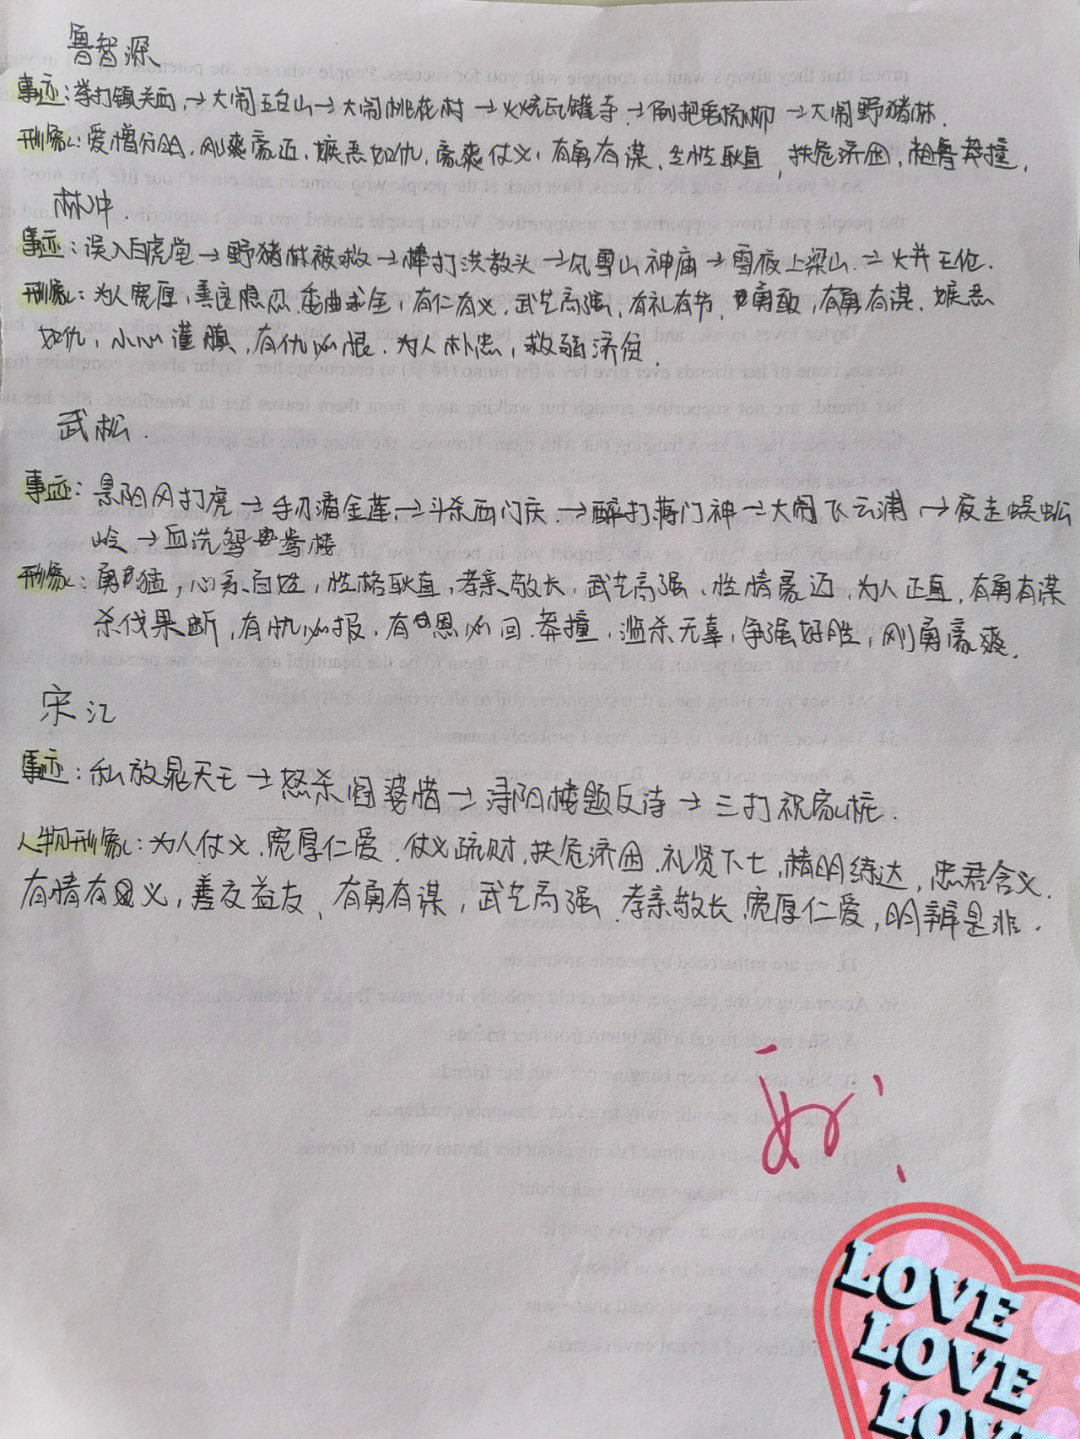 鲁智深
事迹：拳打镇关西，→大闹五台山→大闹桃花村→火烧瓦罐寺→倒把垂杨柳→大闹野猪林．
形象：爱憎分明，刚爽豪迈，嫉恶如仇，豪爽仗义，有勇有谋、生性耿直，扶危济困，粗鲁莽撞，
林冲．
事迹：误入白虎堂→野猪林被救→棒打洪教头→风雪山神庙→雪夜上梁山→火并王伦．
形象：为人宽厚，善良隐忍，委曲求全，有仁有义，武艺高强，有礼有节，勇敢，有勇有谋．嫉恶
如仇，小心谨慎，有仇必恨．为人朴忠，救弱济贫．
武松．
事迹：景阳冈打虎→手刃潘金莲→斗杀西门庆→醉打蒋门神→大闹飞云浦→夜走蜈蚣
岭→血洗鸳鸯楼
形象：勇猛，心系百姓，性格耿直，孝亲敬长，武艺高强、性情豪迈，为人正直，有勇有谋
杀伐果断，有仇必报．有恩必回．莽撞，滥杀无辜，争强好胜，刚勇豪爽．
宋江
事迹：私放晁天王→怒杀阎婆惜→浔阳楼题反诗→三打祝家桩．
人物形象：为人仗义、宽厚仁爱．仗义疏财，扶危济困．礼贤下士，精明练达，忠君含义．
有情有义，善交益友、有勇有谋，武艺高强．孝亲敬长、宽厚仁爱，明辨是非．
LOVE
LOVE
LOVE